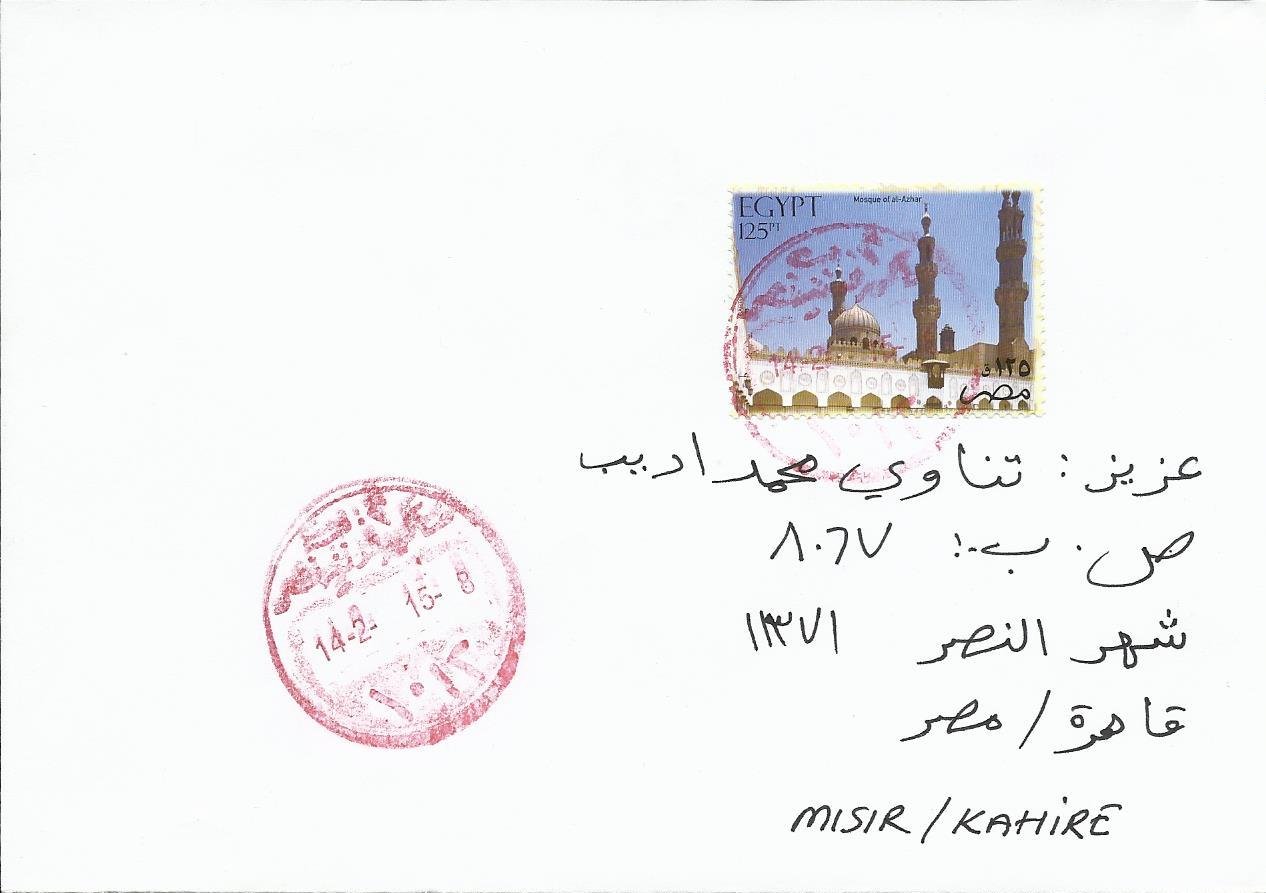 EGYPT
125PT
Mosque of al-Azhar
١٢٥ ق
مصر
عزيز : تناوي محمد اديب
ص . ب .: ٨٠٦٧
شهر النصر ١١٣٧١
قاهرة / مصر
MISIR / KAHİRE
14-2- 15- 8
١٠١٢